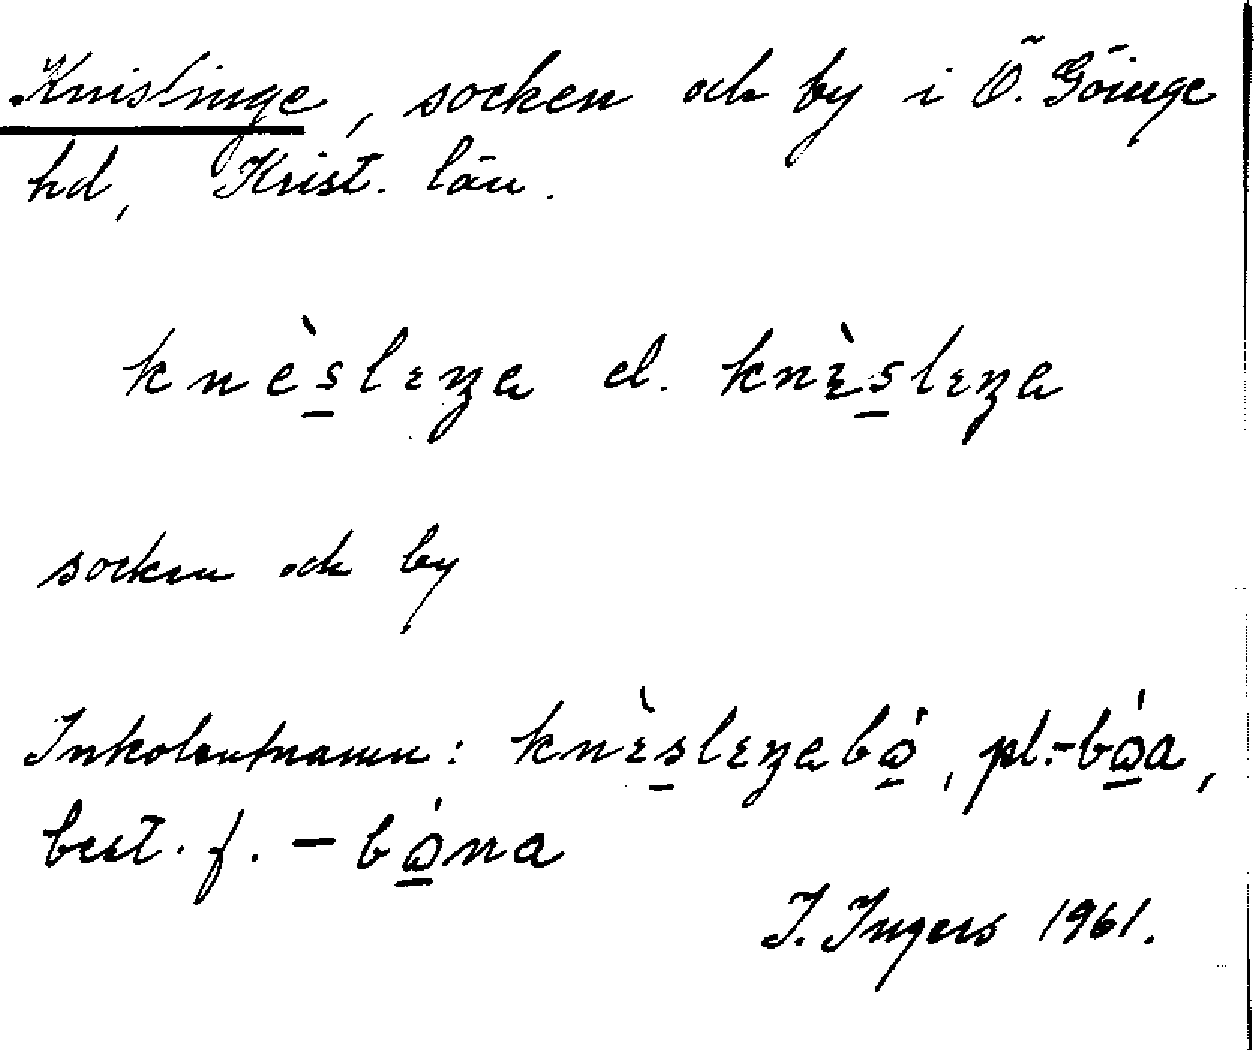 Knislinge, socken och by i Ö. Göinge
hd, Krist. län.
knè̱slɪŋa el. knɛ̀s̱lɪŋa
socken och by
Inkolentnamn: knɛ̀s̱lɪŋabó̱, pl. -bó̱a,
best. f. - bó̱na
I. Ingers 1961.